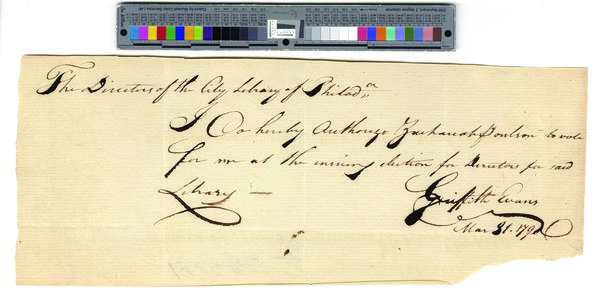 The Directors of the City Library of Philad,,a
I Do hereby Authorize Zachariah Poulson to vote
for me at the ensuing election for Directors for said
Library —
Griffith Evans
Mar 31. 179